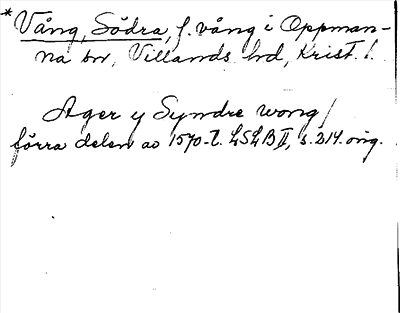 * Vång, Södra, f. vång i Oppman-
na sn, Villands hd, Krist. l.
Ager y Syndre wong/
förra delen av 1570-t. LSLB II, s. 214. orig.